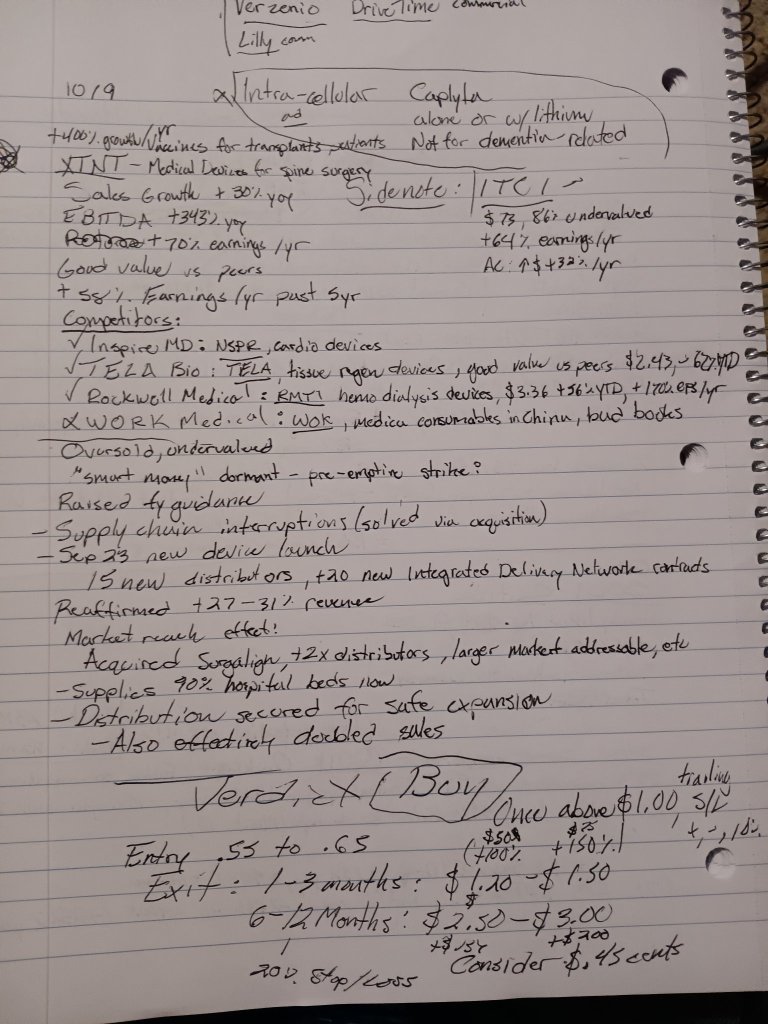 Verzenio DriveTime commercial
Lilly comm
10/9 Intra-cellular Caplyta
ad alone or w/ lithium
+400% growth/yr Vaccines for transplants patients Not for dementia-related
XTNT - Medical Devices for spine surgery
Sales Growth +30% yoy Sidenote: ITCI
EBITDA +343% yoy $73, 86% undervalued
+70% earnings/yr +64% earnings/yr
Good value vs peers AC: ↑$ +32%/yr
+ 58% Earnings/yr past 5yr
Competitors:
✓ Inspire MD: NSPR, cardio devices
✓ TELA Bio: TELA, tissue regen devices, good value vs peers $2.43, -62% YTD
✓ Rockwell Medical: RMTI hemodialysis devices, $3.36 +56% YTD, +170% eps/yr
WORK Medical: WOK, medica consumables in China, bad books
Oversold, undervalued
"smart money" dormant - pre-emptive strike?
Raised fy guidance
- Supply chain interruptions (solved via acquisition)
- Sep 23 new device launch
15 new distributors, +20 new Integrated Delivery Network contracts
Reaffirmed +27-31% revenue
Market reach effect!
Acquired Surgalign, +2x distributors, larger market addressable, etc
- Supplies 90% hospital beds now
- Distribution secured for safe expansion
- Also effectively doubled sales
Verdict Buy
Once above $1.00, trailing S/L
+, -, 10%
Entry .55 to .65 ($50 +100% $75 +150%)
Exit: 1-3 months: $1.20 - $1.50
6-12 Months: $2.50 - $3.00
+$154 +$200
20% Stop/Loss Consider $.45 cents